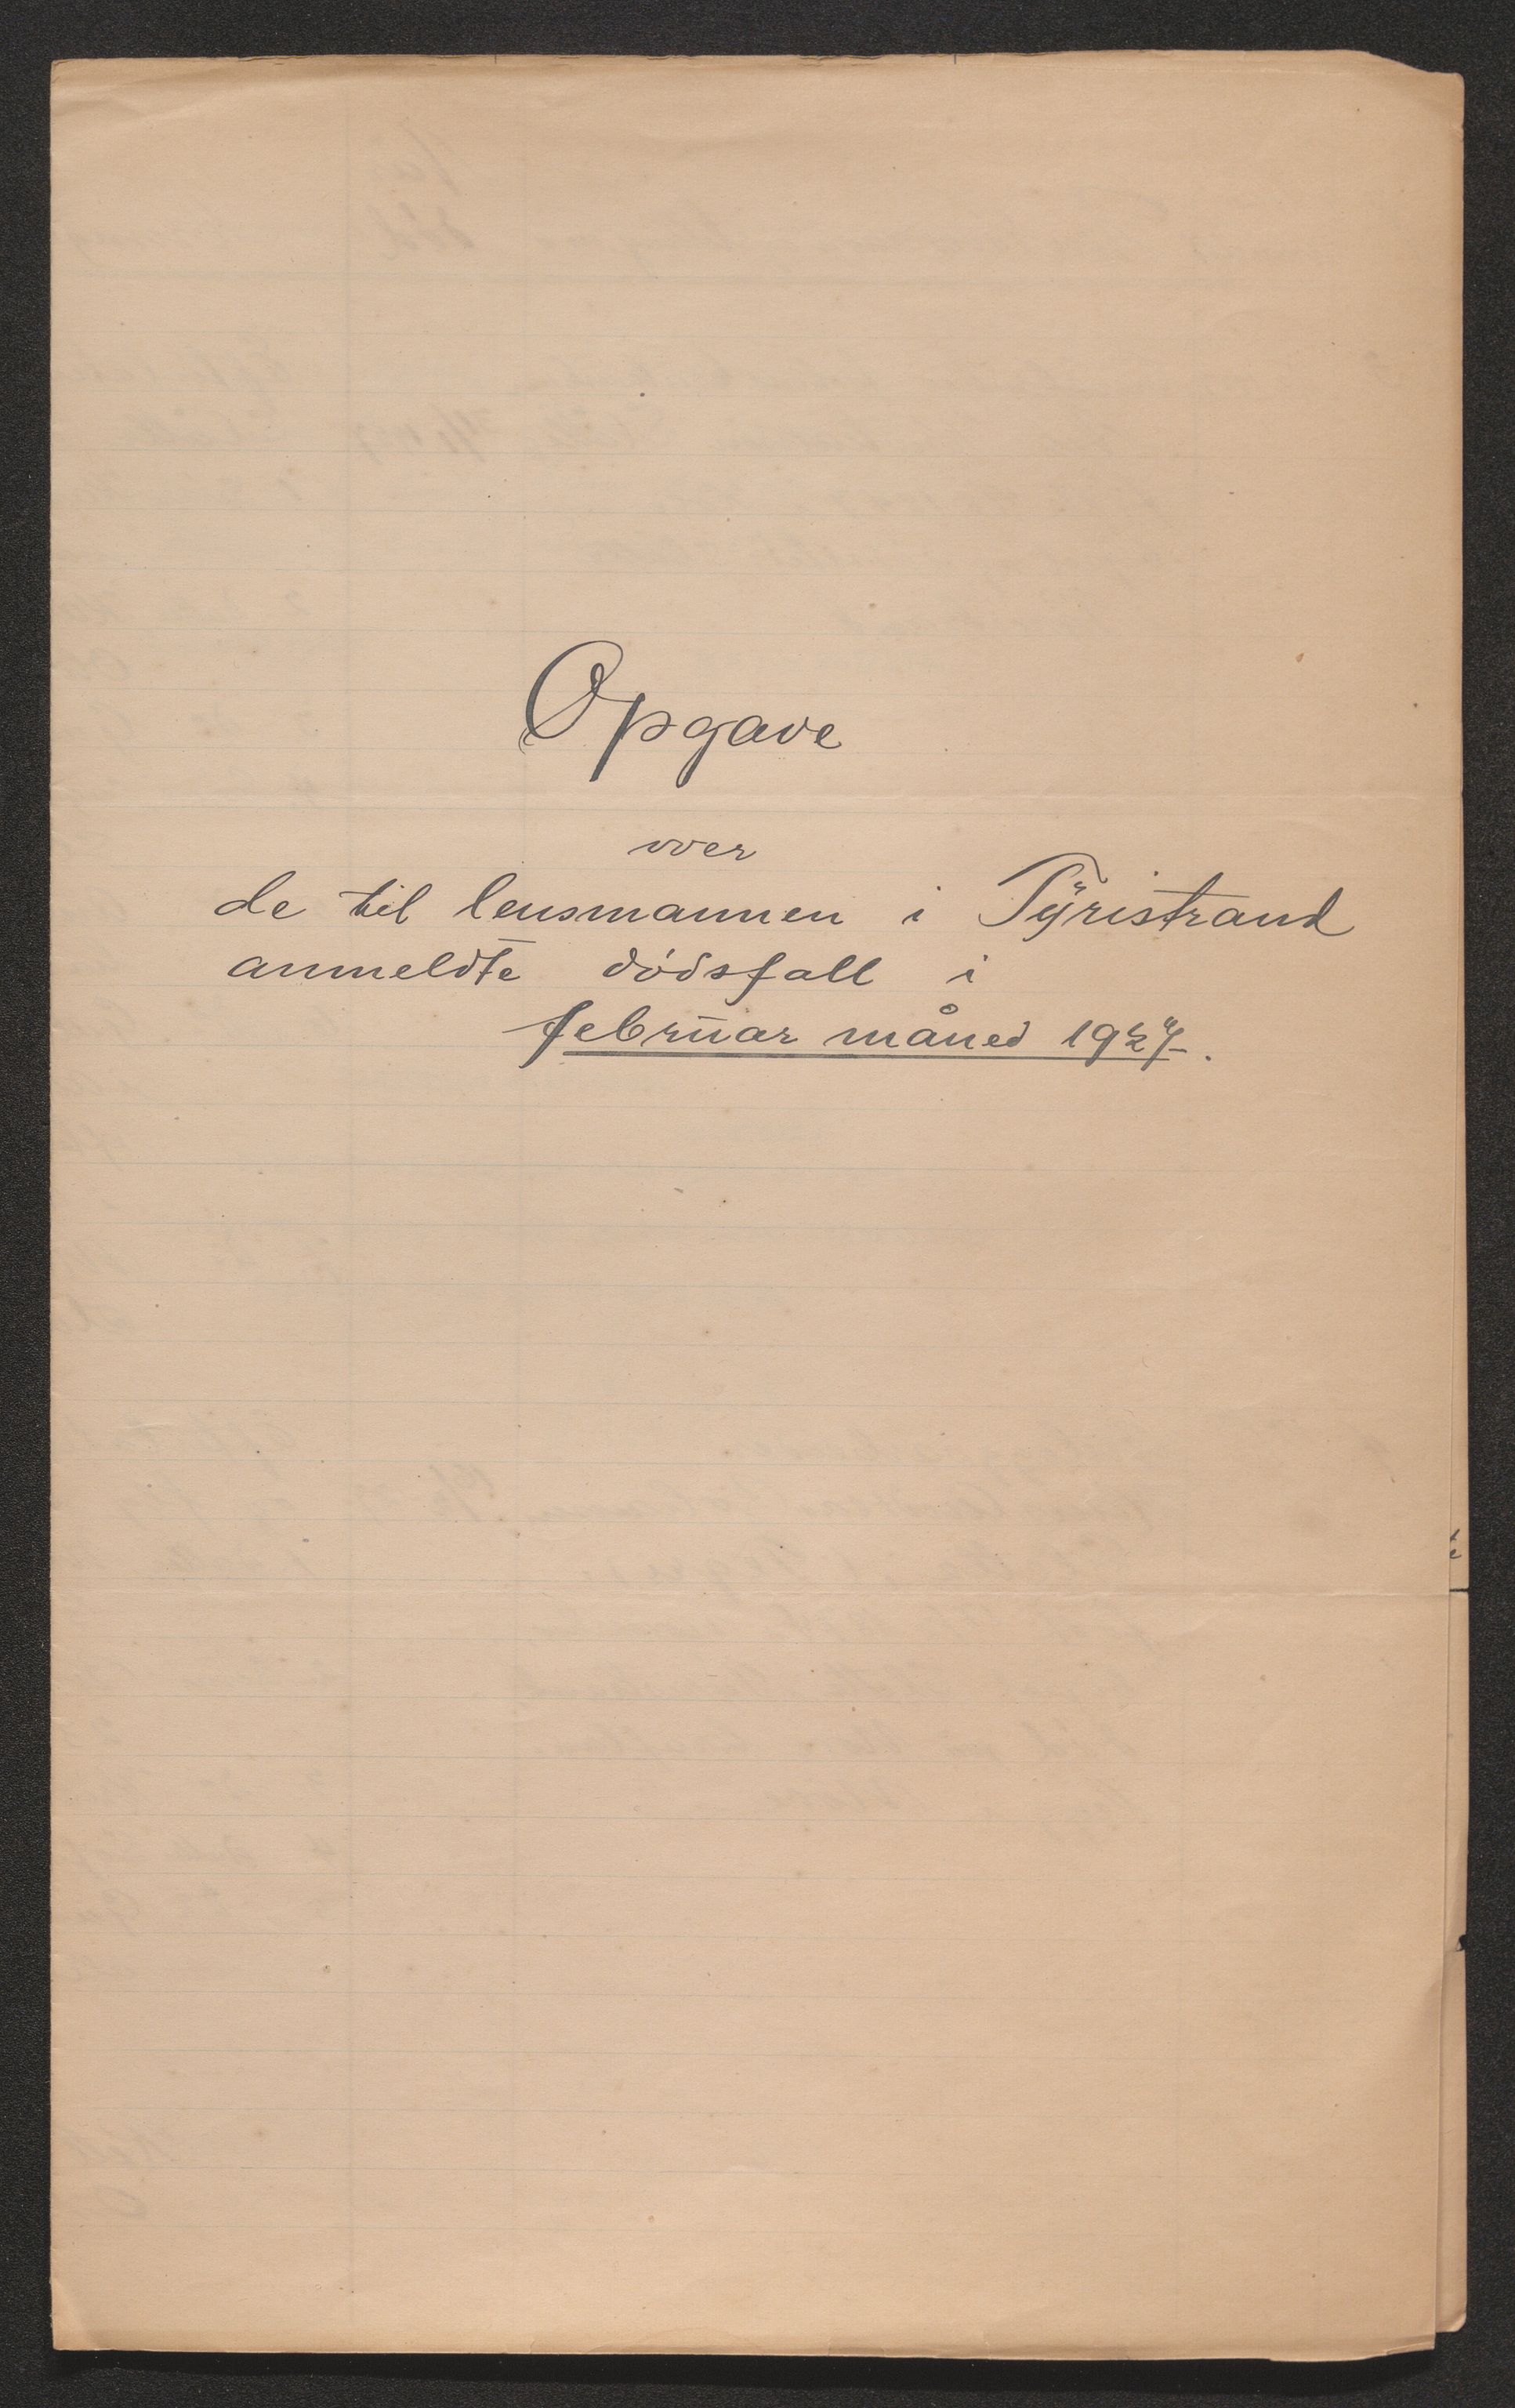 Opgave
over
de til lensmannen i Tyristrand
anmeldte dødsfall i
februar måned 1927.